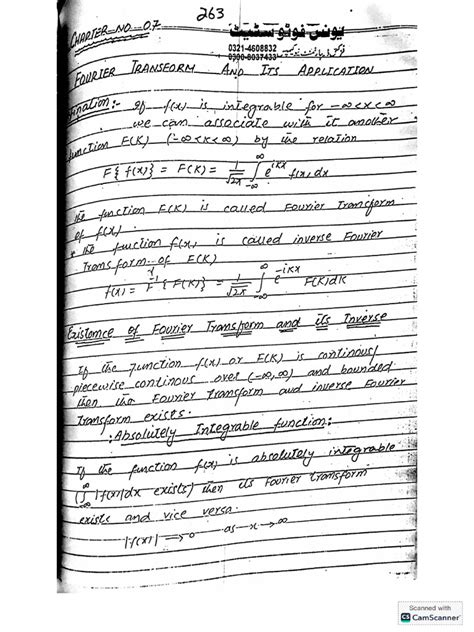 263
CHAPTER NO. 07
یونس فوٹو سٹیٹ
0321-4608832
0300-8037433
FOURIER TRANSFORM AND ITS APPLICATION
If f(x) is integrable for -∞<x<∞
we can associate with it another
function F(K) (-∞<K<∞) by the relation
F{f(x)} = F(K) = 1/√2π ∫_{-∞}^{∞} e^{iKx} f(x) dx
The function F(K) is called Fourier Transform
of f(x).
& the function f(x) is called inverse Fourier
Transform of F(K)
f(x) = F^{-1}{F(K)} = 1/√2π ∫_{-∞}^{∞} e^{-iKx} F(K)dK
Existence of Fourier Transform and its Inverse
If the function f(x) or F(K) is continous/
piecewise continous over (-∞,∞) and bounded
then the Fourier transform and inverse Fourier
transform exists.
:Absolutely Integrable function:
If the function f(x) is absolutely integrable
(∫_{-∞}^{∞} |f(x)|dx exists) then its Fourier transform
exists and vice versa.
|f(x)| → 0 as x → ∞
Scanned with
CS CamScanner